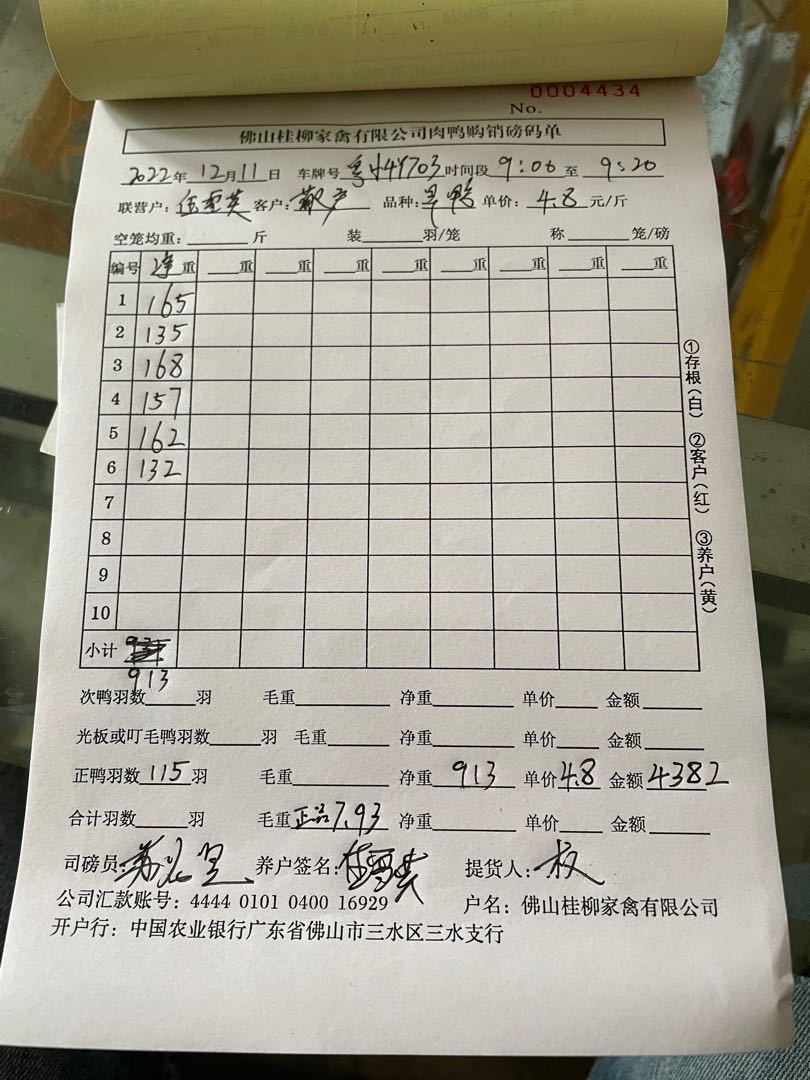 0004434
No.
佛山桂柳家禽有限公司肉鸭购销磅码单
2022年 12月11日 车牌号 粤 44703 时间段 9:06 至 9:20
联营户: 英 客户: 散户 品种: 旱鸭 单价: 4.8 元/斤
空笼均重: 斤 装 羽/笼 称 笼/磅
编号 净重 重 重 重 重 重 重 重 重
1 165
2 135
3 168
4 157
5 162
6 132
7
8
9
10
小计
913
①存根(白) ②客户(红) ③养户(黄)
次鸭羽数 羽 毛重 净重 单价 金额
光板或叮毛鸭羽数 羽 毛重 净重 单价 金额
正鸭羽数 115 羽 毛重 净重 913 单价 4.8 金额 4382
合计羽数 羽 毛重 正品7.93 净重 单价 金额
司磅员: 养户签名: 提货人: 权
公司汇款账号: 4444 0101 0400 16929 户名: 佛山桂柳家禽有限公司
开户行: 中国农业银行广东省佛山市三水区三水支行